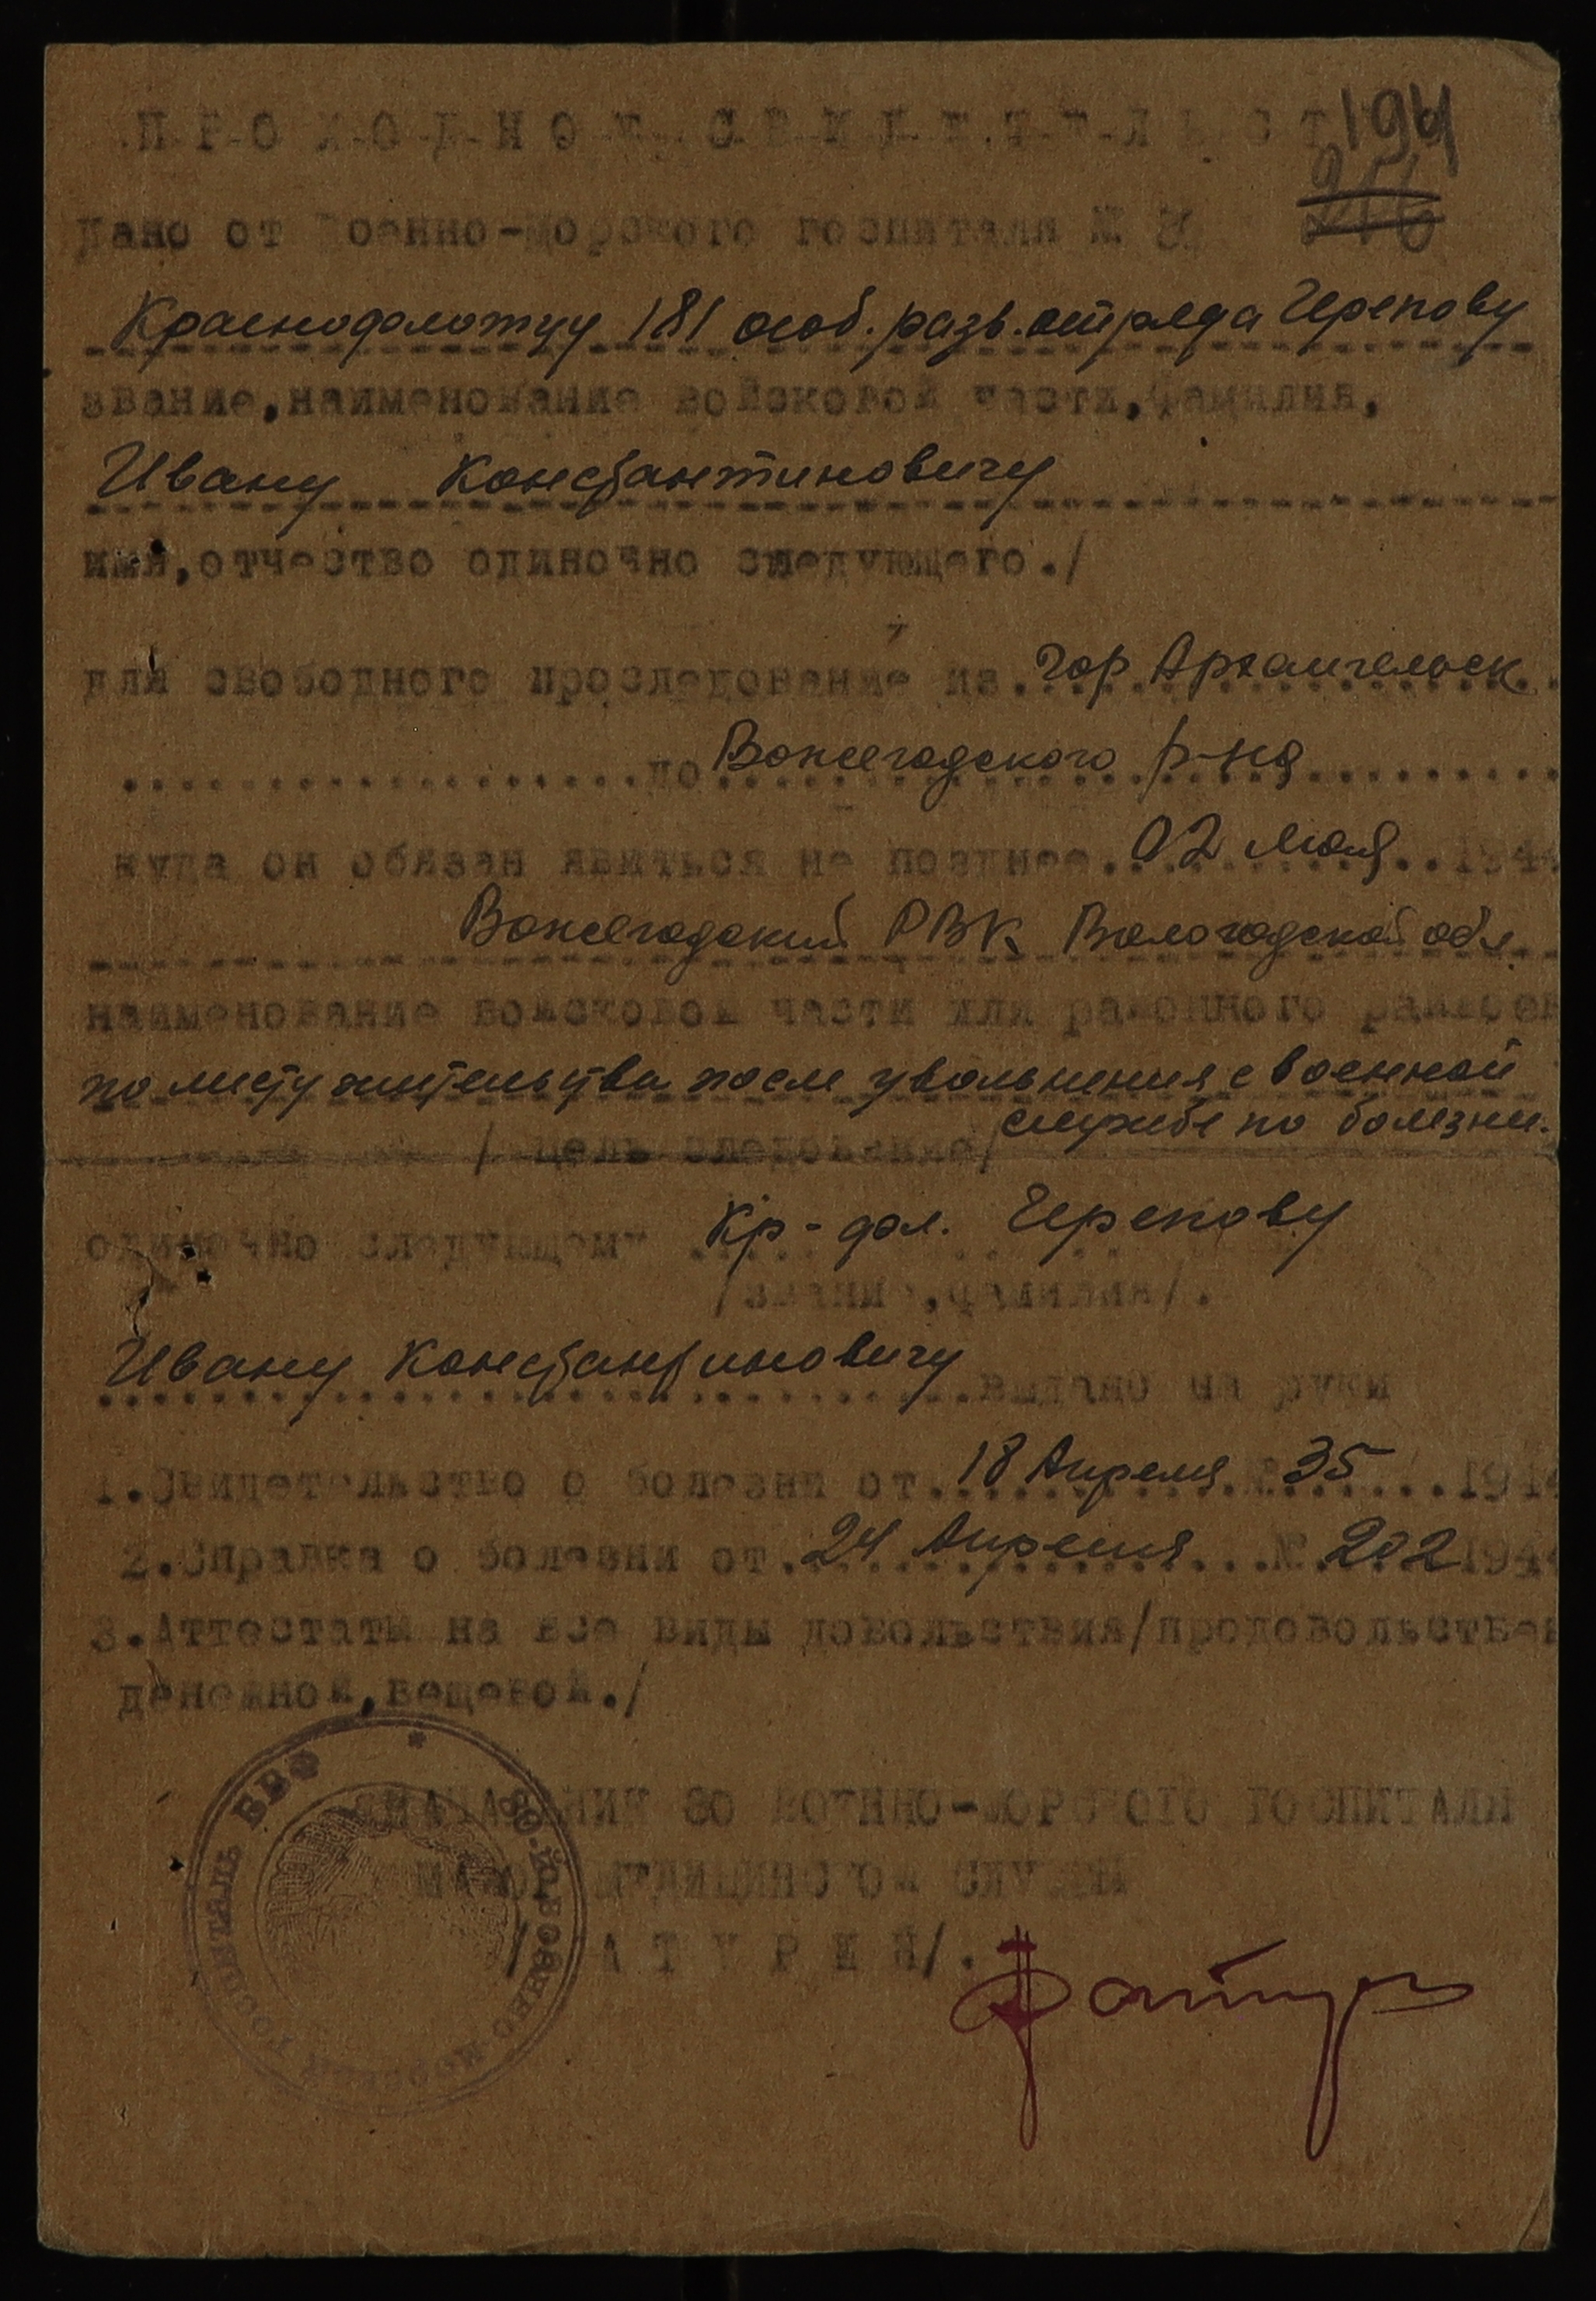 ПРОХОДНОЕ СВИДЕТЕЛЬСТ
194
Дано от Военно-Морского госпиталя №
Краснофлотцу 181 особ. разв. отряда Черепову
звание, наименование войсковой части, фамилия,
Ивану Константиновичу
имя, отчество одиночно следующего./
для свободного проследование из. гор Архангельск
до Вожегодского р-на
куда он обязан явиться не позднее. 02 Июля 194
Вожегодский РВК Вологодской обл
наименование войсковой части или районного
по месту жительства после увольнения с военной
службе по болезни.
/ цель следование/
одиночно следующему Кр-фл. Черепову
/звание, фамилия/.
Ивану Константиновичу выдано на руки
1. Свидетельство о болезни от. 18 Апреля № 35 194
2. Справка о болезни от. 24 Апреля № 202 194
3. Аттестаты на все виды довольствия/продовольствен
денежной, вещевой./
НАЧАЛЬНИК 80 ВОЕННО-МОРСКОГО ГОСПИТАЛЯ
МАЙОР МЕДИЦИНСКОЙ СЛУЖБЫ
80. ВОЕННО-МОРСКОЙ ГОСПИТАЛЬ БВФ